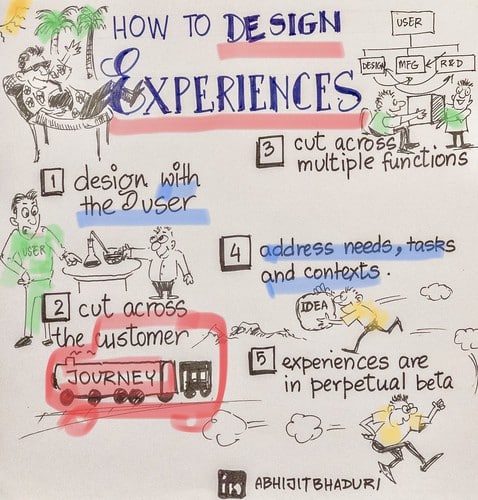 HOW TO DESIGN
EXPERIENCES
USER
DESIGN
MFG
R&D
1 design with
the user
USER
2 cut across
the customer
JOURNEY
3 cut across
multiple functions
4 address needs, tasks
and contexts.
IDEA
5 experiences are
in perpetual beta
in ABHIJITBHADURI